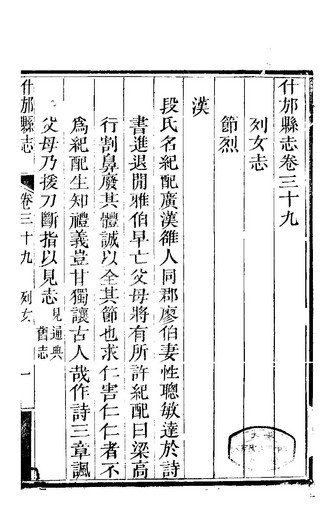 什邡縣志卷三十九
列女志
節烈
漢
段氏名紀配廣漢雒人同郡廖伯妻性聰敏達於詩
書進退閒雅伯早亡父母將有所許紀配曰梁高
行割鼻廢其體誠以全其節也求仁害仁仁者不
為紀配生知禮義豈甘獨讓古人哉作詩三章諷
父母乃援刀斷指以見志見通典
舊志
什邡縣志
卷三十九 列女
一